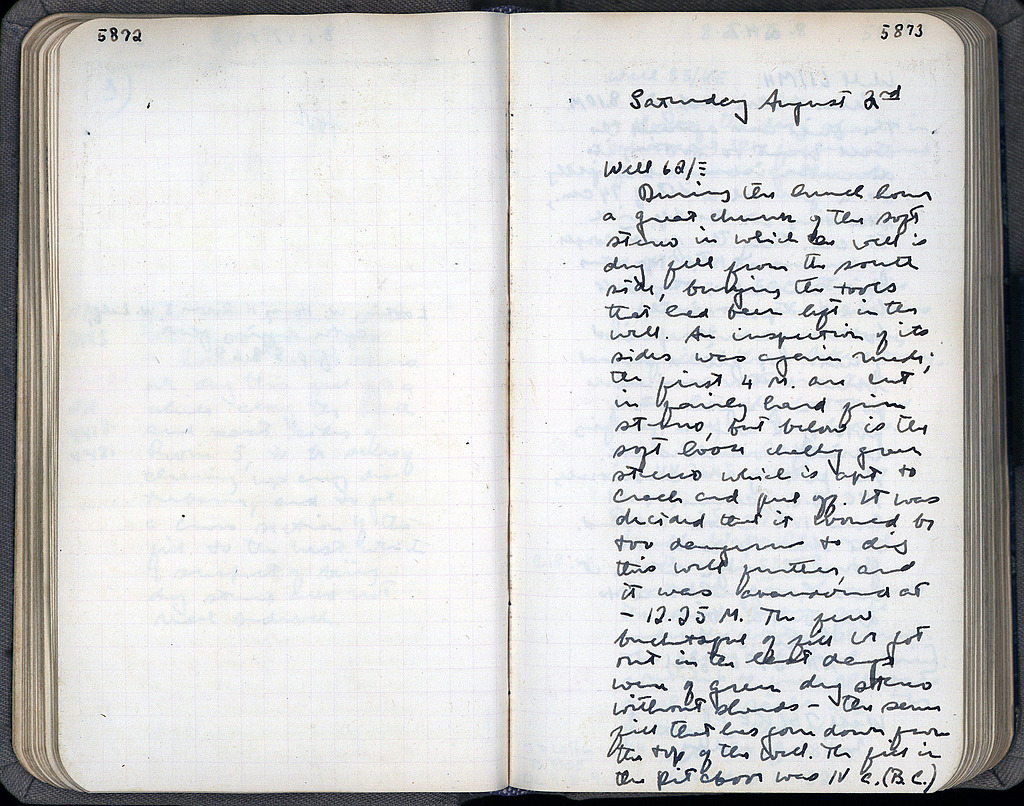 5872
5873
Saturday August 2nd
Well 62/Ξ
During the lunch hour
a great chunk of the soft
stereo in which the well is
dug fell from the south
side, burying the tools
that had been left in the
well. An inspection of its
sides was again made;
the first 4 M. are cut
in fairly hard firm
stereo, but below is the
soft loose chalky green
stereo which is apt to
crack and peel off. It was
decided that it would be
too dangerous to dig
this well further, and
it was abandoned at
- 12.25 M. The few
bucketsful of fill we got
out in the last days
were of green dug stereo
without sherds - the same
fill that has gone down from
the top of the well. The fill in
the pit above was IV c. (B.C.)